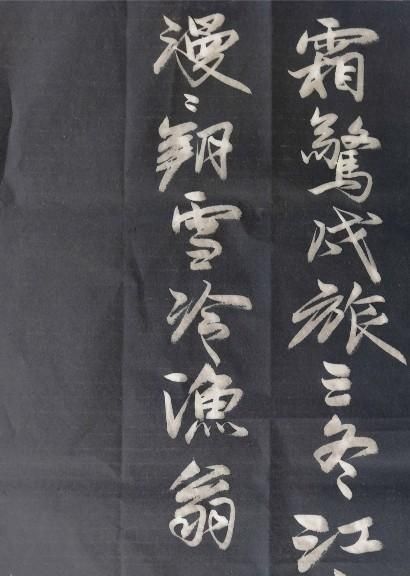 霜驚戍旅三冬江
漫〻翔雪冷漁翁